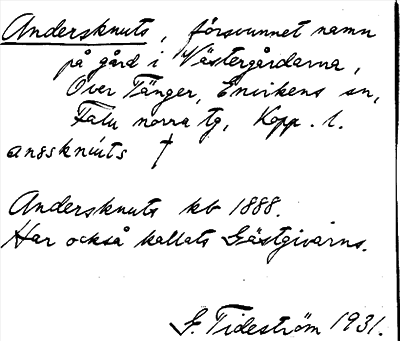 Andersknuts, försvunnet namn
på gård i Västergårdarna,
Över Tänger, Envikens sn,
Falu norra tg, Kopp. l.
an8sknuts †
Andersknuts kb 1888.
Har också kallats Gästgivarns.
G. Tideström 1931.